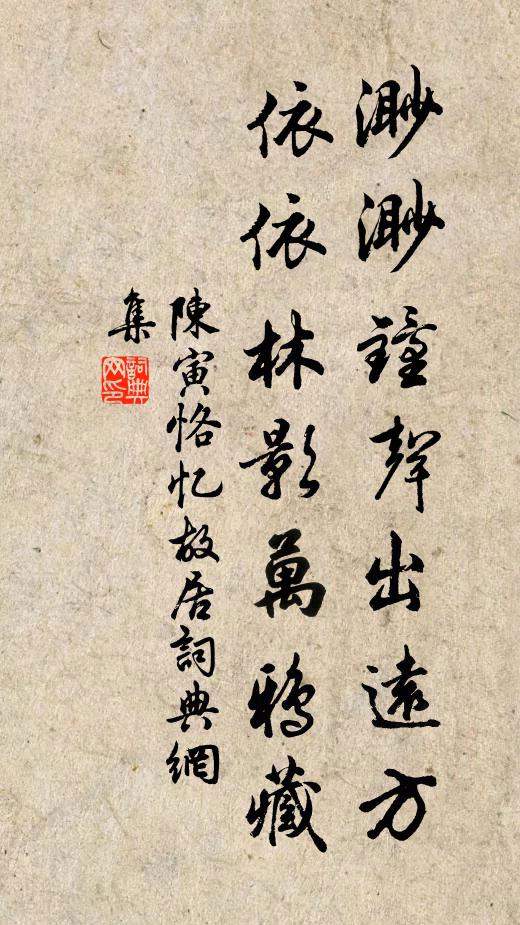 渺渺鐘聲出遠方
依依林影萬鴉藏
陳寅恪忆故居詞典網
集
詞典
网印